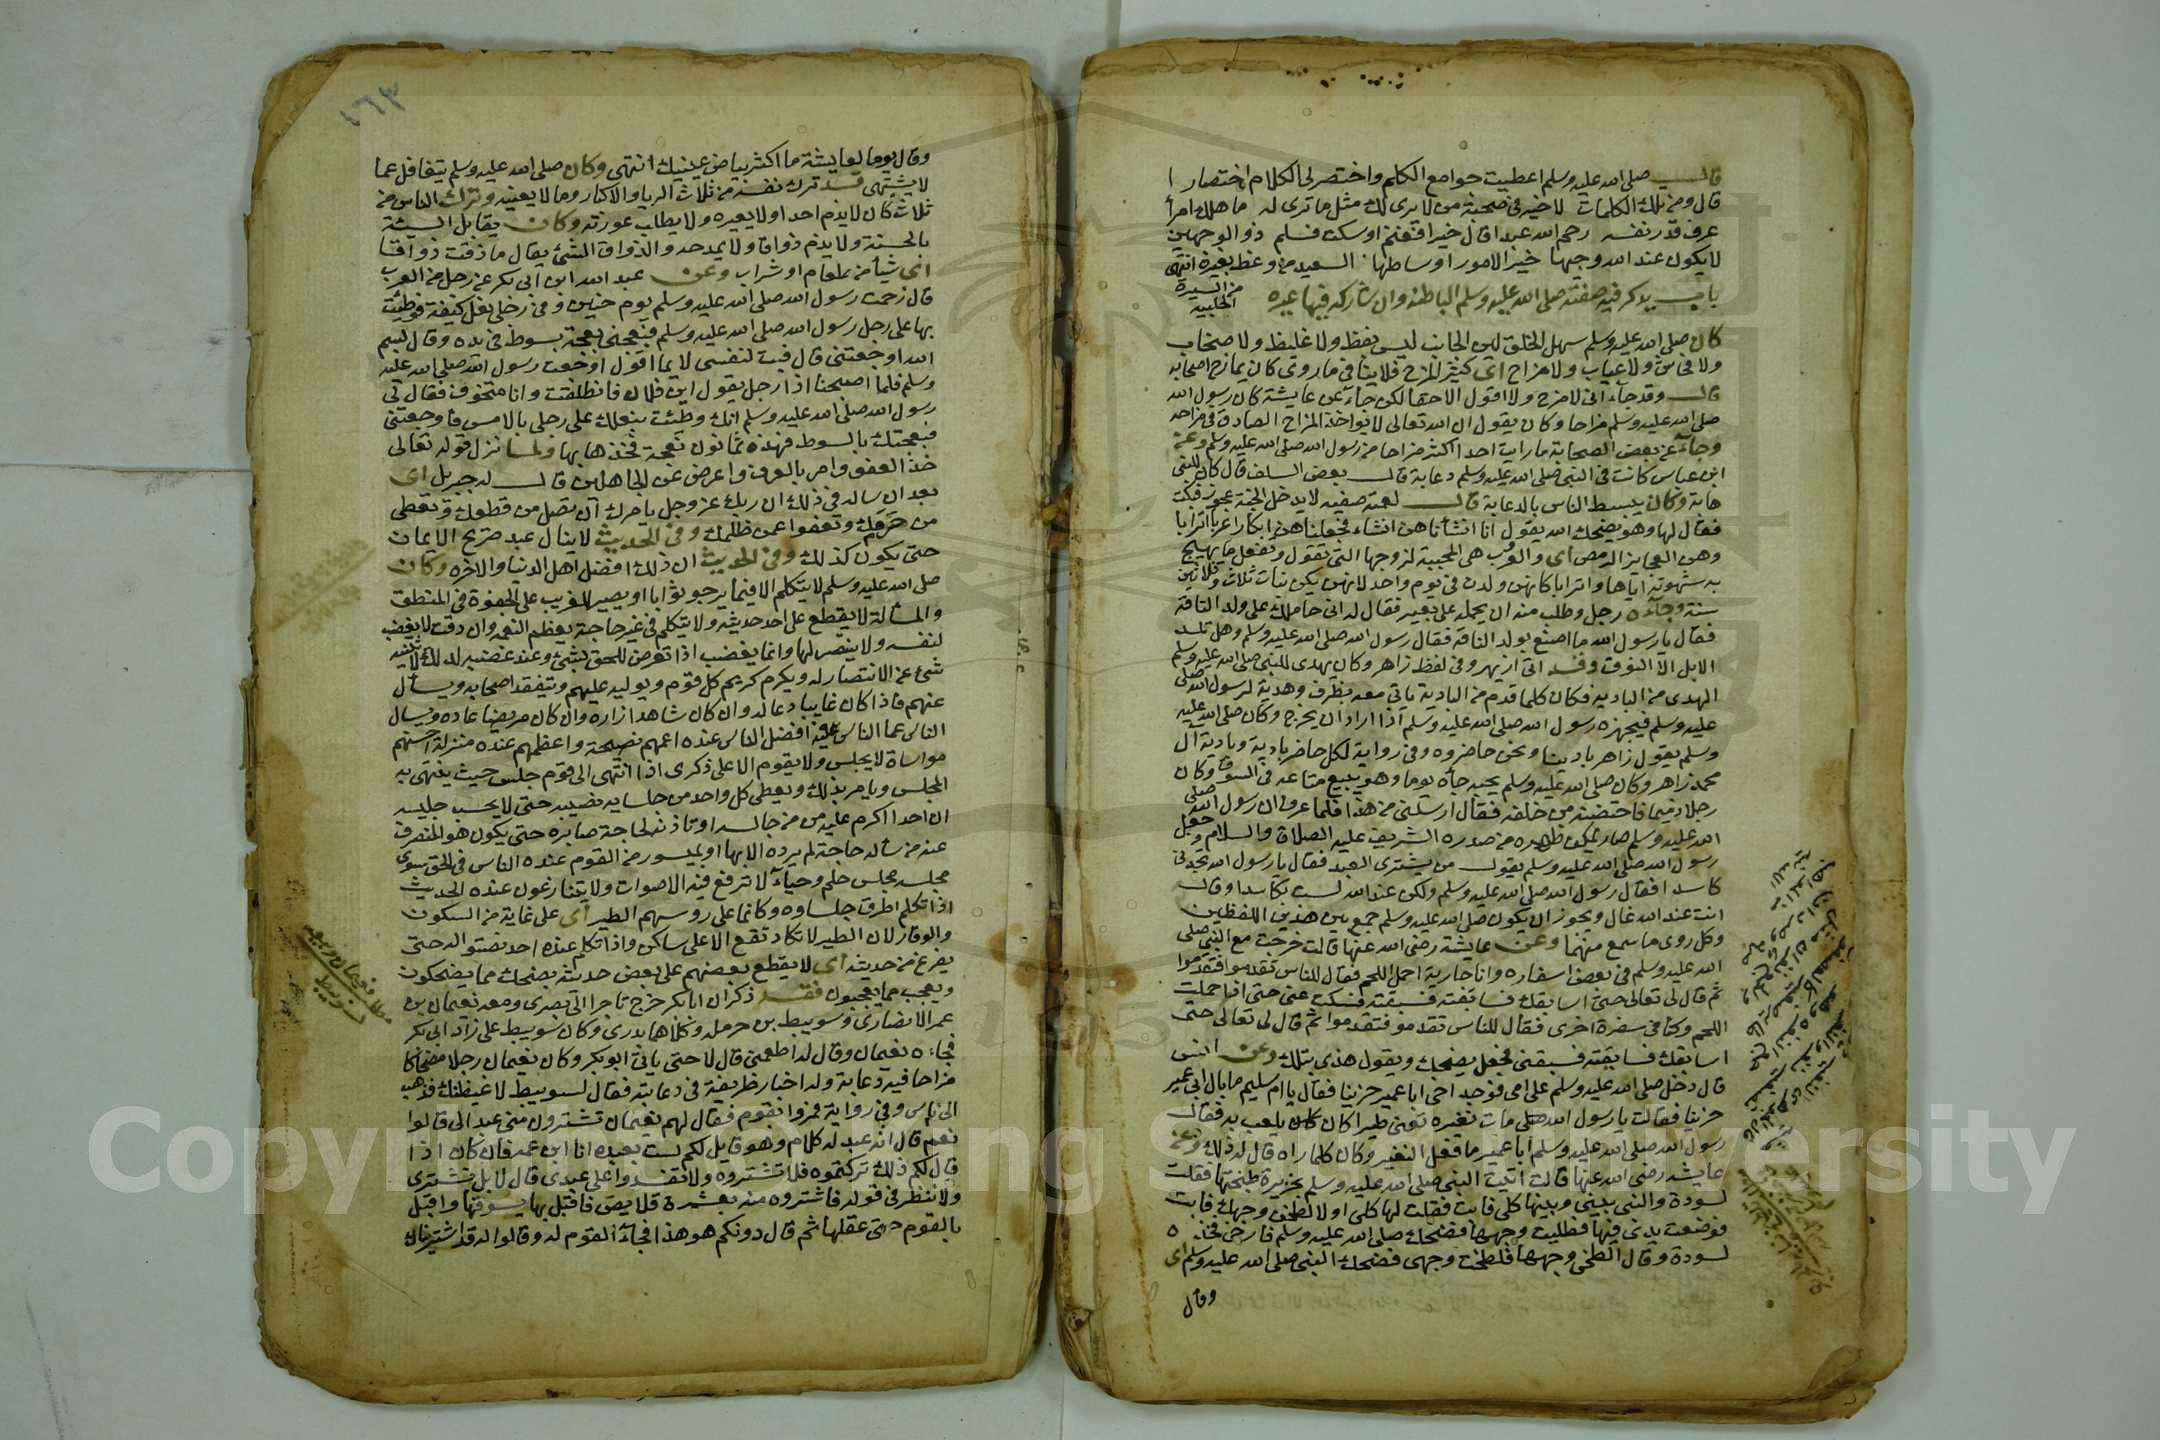 قال صلى الله عليه وسلم اعطيت جوامع الكلم واختصر لي الكلام اختصارا
قال ومن تلك الكلمات لا خير في صحبة من لا يرى لك مثل ما ترى له ما هلك امرأ
عرف قدر نفسه رحم الله عبدا قال خيرا فغنم او سكت فسلم ذو الوجهين
لا يكون عند الله وجيها خير الامور اوساطها السعيد من وعظ بغيره انتهى
باب يذكر فيه صفته صلى الله عليه وسلم الباطنة وان شاركه فيها غيره
من السيرة
الحلبيه
كان صلى الله عليه وسلم سهل الخلق لين الجانب ليس بفظ ولا غليظ ولا صخاب
ولا فحاش ولا عياب ولا مزاح اي كثير المزح فلا ينافي ما روي كان يمازح اصحابه
قال وقد جآء اني لامزح ولا اقول الا حقا لكن جآء عن عايشة كان رسول الله
صلى الله عليه وسلم مزاحا وكان يقول ان الله تعالى لا يواخذ المزاح الصادق في مزاحه
وجآء عن بعض الصحابة ما رايت احدا اكثر مزاحا من رسول الله صلى الله عليه وسلم وعن
ابن عباس كانت في النبي صلى الله عليه وسلم دعابة قال بعض السلف قال كان للنبي
هابة وكان يبسط الناس بالدعابة قال لعمته صفيه لا يدخل الجنة عجوز فبكت
فقال لها وهو يضحك الله يقول انا انشأناهن انشاء فجعلناهن ابكارا عربا اترابا
وهن العجايز الرمص اي والعرب هي المحببة لزوجها التي تقول وتفعل ما يهيج
به شهوته اياها واترابا كانهن ولدن في يوم واحد لانهن يكن بنات ثلاث وثلاثين
سنة وجآءه رجل وطلب منه ان يحمله على بعير فقال له اني حاملك على ولد الناقة
فقال يا رسول الله ما اصنع بولد الناقة فقال رسول الله صلى الله عليه وسلم وهل تلد
الابل الا النوق وقد اتى ازيهر وفي لفظ زاهر وكان يهدى للنبي صلى الله عليه وسلم
الهدى من الباديه فكان كلما قدم من البادية ياتي معه بظرف وهدية لرسول الله صلى
عليه وسلم فيجهزه رسول الله صلى الله عليه وسلم اذا اراد ان يخرج وكان صلى الله عليه
وسلم يقول زاهر باديتنا ونحن حاضروه وفي رواية لكل حاضر بادية وبادية آل
محمد زاهر وكان صلى الله عليه وسلم يحبه جآه يوما وهو يبيع متاعه في السوق وكان
رجلا دميما فاحتضنه من خلفه فقال ارسلني من هذا فلما عرف ان رسول الله صلى
الله عليه وسلم صار يمكن ظهره من صدره الشريف عليه الصلاة والسلام وجعل
رسول الله صلى الله عليه وسلم يقول من يشتري العبد فقال يا رسول الله تجدني
كاسدا فقال رسول الله صلى الله عليه وسلم ولكن عند الله لست بكاسدا وقال
انت عند الله غال ويجوز ان يكون صلى الله عليه وسلم جمع بين هذين اللفظين
وكل روى ما سمع منهما وعن عايشة رضى الله عنها قالت خرجت مع النبي صلى
الله عليه وسلم في بعض اسفاره وانا جارية لم احمل اللحم فقال للناس تقدموا فتقدموا
ثم قال لي تعالى حتى اسابقك فسابقته فسبقته فسكت عني حتى اذا حملت
اللحم وكنا في سفرة اخرى فقال للناس تقدموا فتقدموا ثم قال لي تعالى حتى
اسابقك فسابقته فسبقني فجعل يضحك ويقول هذى بتلك وعن انس
قال دخل صلى الله عليه وسلم على امي فوجد اخي ابا عمير حزينا فقال يا ام سليم ما بال ابي عمير
حزينا فقالت يا رسول الله مات نغيره تعنى طيرا كان يلعب به فقال
رسول الله صلى الله عليه وسلم أبا عمير ما فعل النغير وكان كلما راه قال له ذلك وعن
عايشه رضى الله عنها قالت اتيت النبي صلى الله عليه وسلم بخزيرة طبختها فقلت
لسودة والنبي بيني وبينها كلي فابت فقلت لها كلي او لالطخن وجهك فابت
فوضعت يدي فيها فطليت وجهها فضحك صلى الله عليه وسلم فارخى فخذه
لسودة وقال الطخي وجهها فلطخت وجهي فضحك النبي صلى الله عليه وسلم اي
وقال
١٦٣
وقال يوما لعايشة ما اكثر بياض عينيك انتهى وكان صلى الله عليه وسلم يتغافل عما
لا يشتهى قد ترك نفسه من ثلاث الريا والاكثار وما لا يعنيه وترك الناس من
ثلاث كان لا يذم احدا ولا يعيره ولا يطلب عورته وكان يقابل السيئة
بالحسنة ولا يذم ذواقا ولا يمدحه والذواق الشئ يقال ما ذقت ذواقا
اي شيأ من طعام او شراب وعن عبد الله ابن ابى بكر عن رجل من العرب
قال زحمت رسول الله صلى الله عليه وسلم يوم حنين وفي رجلى نعل كثيفة فوطئت
بها على رجل رسول الله صلى الله عليه وسلم فنفحني نفحة بسوط في يده وقال بسم
الله اوجعتني قال فبت لنفسي لايما اقول اوجعت رسول الله صلى الله عليه
وسلم فلما اصبحنا اذا رجل يقول اين فلان فانطلقت وانا متخوف فقال لي
رسول الله صلى الله عليه وسلم انك وطئت بنعلك على رجلي بالامس فاوجعتني
فنفحتك بالسوط فهذه ثمانون نعجة فخذها بها ولما نزل قوله تعالى
خذ العفو وامر بالعرف واعرض عن الجاهلين قال له جبريل اي
بعد ان ساله في ذلك ان ربك عز وجل يامرك ان تصل من قطعك وتعطي
من حرمك وتعفوا عمن ظلمك وفي الحديث لا ينال عبد صريح الايمان
حتى يكون كذلك وفي الحديث ان ذلك افضل اهل الدنيا والاخره وكان
صلى الله عليه وسلم لا يتكلم الا فيما يرجو ثوابا او يصبر للغريب على الجفوة في المنطق
والمسألة لا يقطع على احد حديثه ولا يتكلم في غير حاجة يعظم النعمه وان دقت لا يغضب
لنفسه ولا ينتصر لها وانما يغضب اذا تعرض للحق بشئ وعند غضبه لذلك لا يثنيه
شئ عن الانتصار له ويكرم كريم كل قوم ويوليه عليهم ويتفقد اصحابه ويسأل
عنهم فاذا كان غايبا دعا له وان كان شاهدا زاره وان كان مريضا عاده ويسال
الناس عما الناس عليه افضل الناس عنده اعمهم نصيحة واعظمهم عنده منزلة احسنهم
مواساة لا يجلس ولا يقوم الا على ذكر اي اذا انتهى الى قوم جلس حيث ينتهى به
المجلس ويامر بذلك ويعطي كل واحد من جلسايه نصيبه حتى لا يحسب جليسه
ان احدا اكرم عليه من من جالسه او نازعه لحاجة صابره حتى يكون هو المنصرف
عنه من سأله حاجة لم يرده الا بها او بميسور من القوم عنده الناس في الحق سوى
مجلسه مجلس حلم وحيآء لا ترفع فيه الاصوات ولا يتنازعون عنده الحديث
اذا تكلم اطرق جلساوه وكانما على روسهم الطير اي على غاية من السكون
والوقار لان الطير لا تكاد تقع الا على ساكن واذا تكلم عنده احد نصتوا له حتى
يفرغ من حديثه اي لا يقطع بعضهم على بعض حديثه يضحك مما يضحكون
ويعجب مما يعجبون فقد ذكر ان ابا بكر خرج تاجرا الى بصرى ومعه نعيمان بن
عمر الانصارى وسويبط بن حرمله وكلاهما بدرى وكان سويبط على زاد ابى بكر
فجاءه نعيمان وقال له اطعمنى قال لا حتى ياتي ابو بكر وكان نعيمان رجلا مضحاكا
مزاحا فيه دعابة وله اخبار ظريفة في دعابته فقال لسويبط لاغيظنك فذهب
الى ناس وفي رواية فمروا بقوم فقال لهم نعيمان تشترون منى عبد الى قالوا
نعم قال انه عبد له كلام وهو قايل لكم لست بعبد انا ابن عمه فان كان اذا
قال لكم ذلك تركتموه فلا تشتروه ولا تفسدوا على عبدى قال لا بل نشترى
ولا ننظر في قوله فاشتروه منه بعشرة قلايص فاقبل بها يسوقها واقبل
بالقوم حتى عقلها ثم قال دونكم هو هذا فجآء القوم له وقالوا له قد اشتريناك